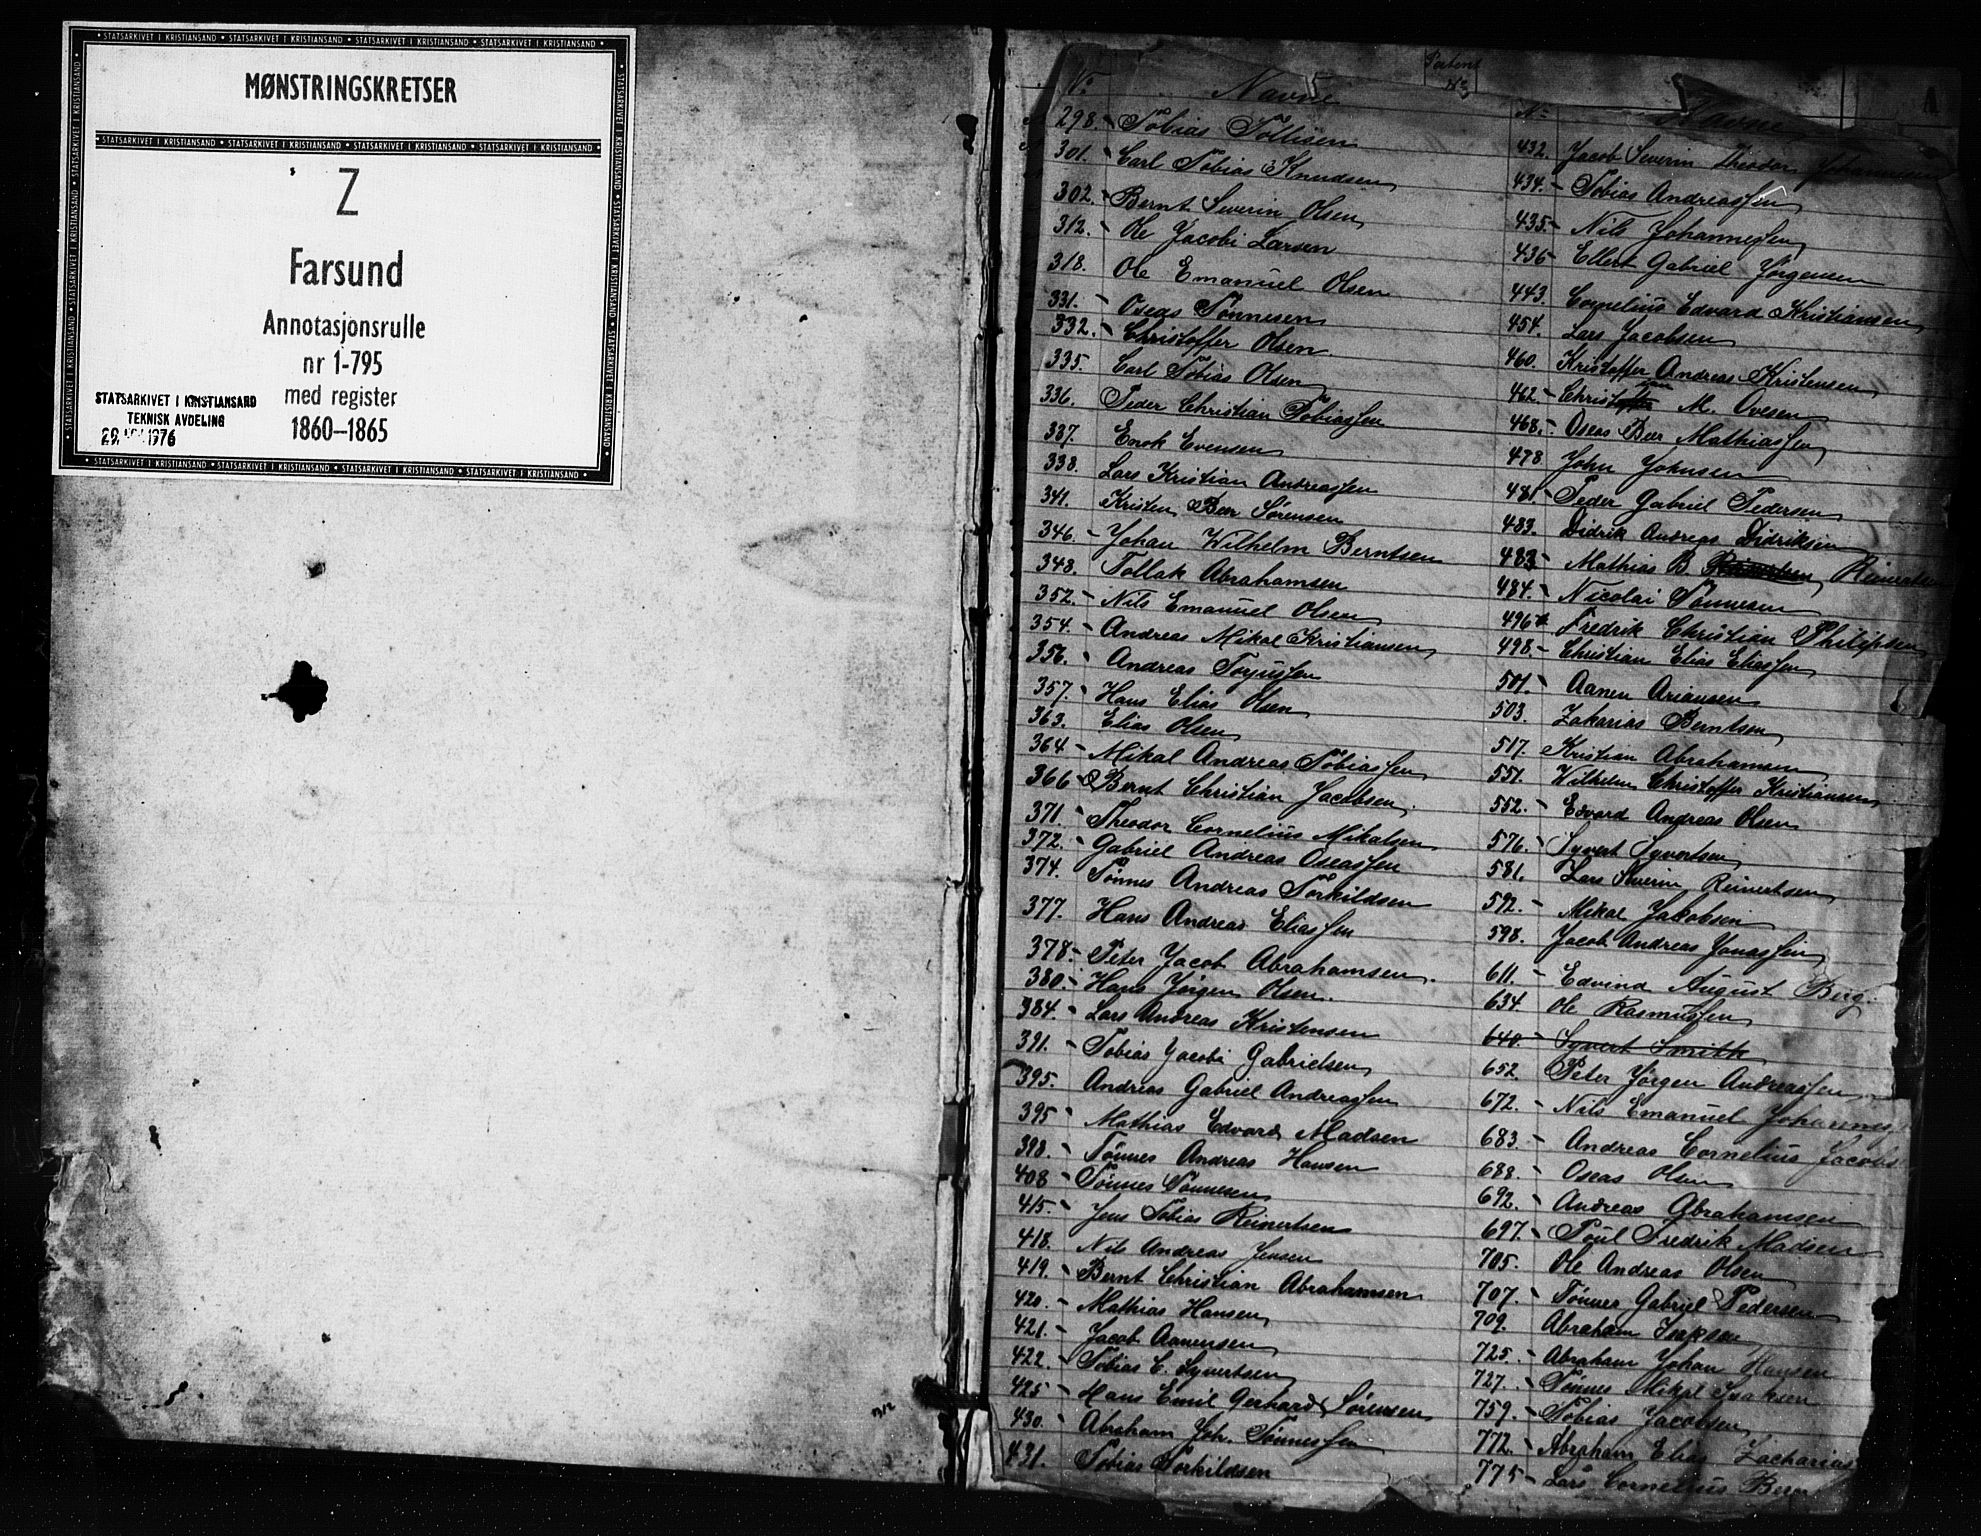 STATSARKIVET I KRISTIANSAND
MØNSTRINGSKRETSER
Z
Farsund
Annotasjonsrulle
nr 1-795
med register
1860–1865
STATSARKIVET I KRISTIANSAND
TEKNISK AVDELING
1976
312
No Navne
298. Tobias Tollisen
301. Carl Tobias Knudsen
302. Bernt Severin Olsen
312. Ole Jacobi Larsen
318. Ole Emanuel Olsen
331. Oseas Tønnesen
332. Christoffer Olsen
335. Carl Tobias Olsen
336. Peder Christian Tobiassen
337. Enok Evensen
338. Lars Kristian Andreassen
341. Kristen Beer Sørensen
346. Johan Wilhelm Berntsen
348. Tollak Abrahamsen
352. Nils Emanuel Olsen
354. Andreas Mikal Kristiansen
356. Andreas Torjussen
357. Hans Elias Olsen
363. Elias Olsen
364 Mikal Andreas Tobiassen
366 Bernt Christian Jacobsen
371. Theodor Cornelius Mikalsen
372. Gabriel Andreas Oseassen
374. Tønnes Andreas Torkildsen
377. Hans Andreas Eliassen
378. Peter Jacob Abrahamsen
380. Hans Jørgen Olsen
384. Lars Andreas Kristensen
391. Tobias Jacobi Gabrielsen
395. Andreas Gabriel Andreassen
395 Mathias Edvard Madsen
398. Tønnes Andreas Hansen
408 Tønnes Tønnesen
415. Jens Tobias Reinertsen
418. Nils Andreas Jensen
419. Bernt Christian Abrahamsen
420. Mathias Hansen
421. Jacob Aanensen
422. Tobias C. Syvertsen
425 Hans Emil Gerhard Sørensen
430. Abraham Joh. Tønnessen
431. Tobias Torkildsen
Patent No
No Navne A
432. Jacob Severin Theodor Johannesen
434. Tobias Andreassen
435. Nils Johannessen
436 Ellert Gabriel Jørgensen
443. Cornelius Edvard Kristiansen
454. Lars Jacobsen
460. Kristoffer Andreas Kristensen
462 M. Ovesen
468. Oseas Beer Mathiassen
478 John Johnsen
481 Peder Gabriel Pedersen
483. Didrik Andreas Didriksen
483 Mathias B. Reinertsen
484. Nicolai Tønnesen
496 Fredrik Christian Philipsen
498. Christian Elias Eliassen
501. Aanen Ariansen
503. Zakarias Berntsen
517. Kristian Abrahamsen
551. Wilhelm Christoffer Kristiansen
552. Edvard Andreas Olsen
576. Syvert Syvertsen
581. Lars Severin Reinertsen
592. Mikal Jakobsen
598. Jacob Andreas Jonassen
611. Edvind August Berg
634. Ole Rasmussen
640. Syvert Smith
652. Peter Jørgen Andreassen
672. Nils Emanuel Johannes
683. Andreas Cornelius Jacobs
688. Oseas Olsen
692. Andreas Abrahamsen
697. Poul Fredrik Madsen
705. Ole Andreas Olsen
707. Tønnes Gabriel Pedersen
709. Abraham Isaksen
725. Abraham Johan Hansen
727. Tønnes Mikal Isaksen
759. Tobias Jacobsen
772. Abraham Elias Zacharias
775 Lars Cornelius Bern